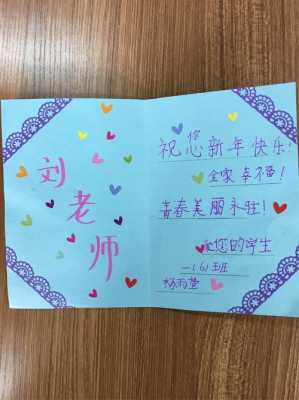 刘
老
师
祝您新年快乐!
全家幸福!
青春美丽永驻!
您的学生
一(6)班
杨雨